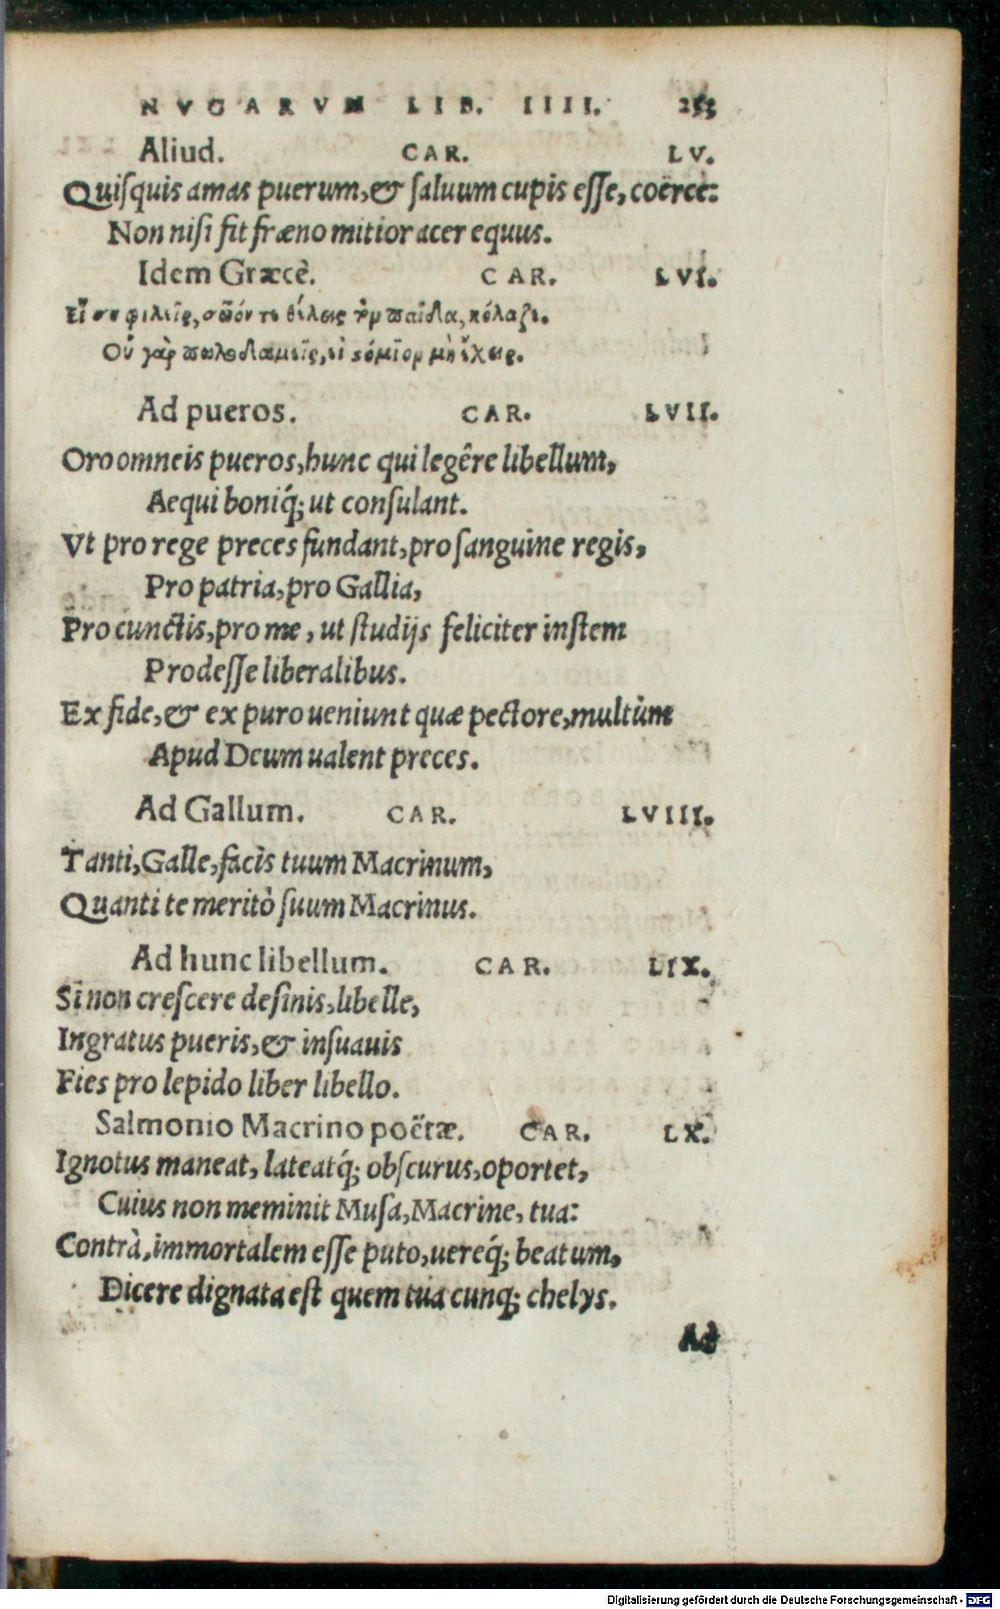 NVGARVM LIB. IIII. 255
Aliud. CAR. LV.
Quiſquis amas puerum, & ſaluum cupis eſſe, coërce:
Non niſi fit fræno mitior acer equus.
Idem Græcè. CAR. LVI.
Εἴ συ φιλεῖς, σῶόν τε θέλεις τὸν παῖδα, κόλαζε.
Οὐ γὰρ πωλοδαμεῖς, εἰ στόμιον μὴ ἔχεις.
Ad pueros. CAR. LVII.
Oro omneis pueros, hunc qui legêre libellum,
Aequi boniq́; ut conſulant.
Vt pro rege preces fundant, pro ſanguine regis,
Pro patria, pro Gallia,
Pro cunctis, pro me, ut ſtudijs feliciter inſtem
Prodeſſe liberalibus.
Ex fide, & ex puro ueniunt quæ pectore, multùm
Apud Deum ualent preces.
Ad Gallum. CAR. LVIII.
Tanti, Galle, facis tuum Macrinum,
Quanti te meritò ſuum Macrinus.
Ad hunc libellum. CAR. LIX.
Si non creſcere deſinis, libelle,
Ingratus pueris, & inſuauis
Fies pro lepido liber libello.
Salmonio Macrino poëtæ. CAR. LX.
Ignotus maneat, lateatq́; obſcurus, oportet,
Cuius non meminit Muſa, Macrine, tua:
Contrà, immortalem eſſe puto, uereq́; beatum,
Dicere dignata eſt quem tua cunq; chelys.
Ad
Digitalisierung gefördert durch die Deutsche Forschungsgemeinschaft - DFG